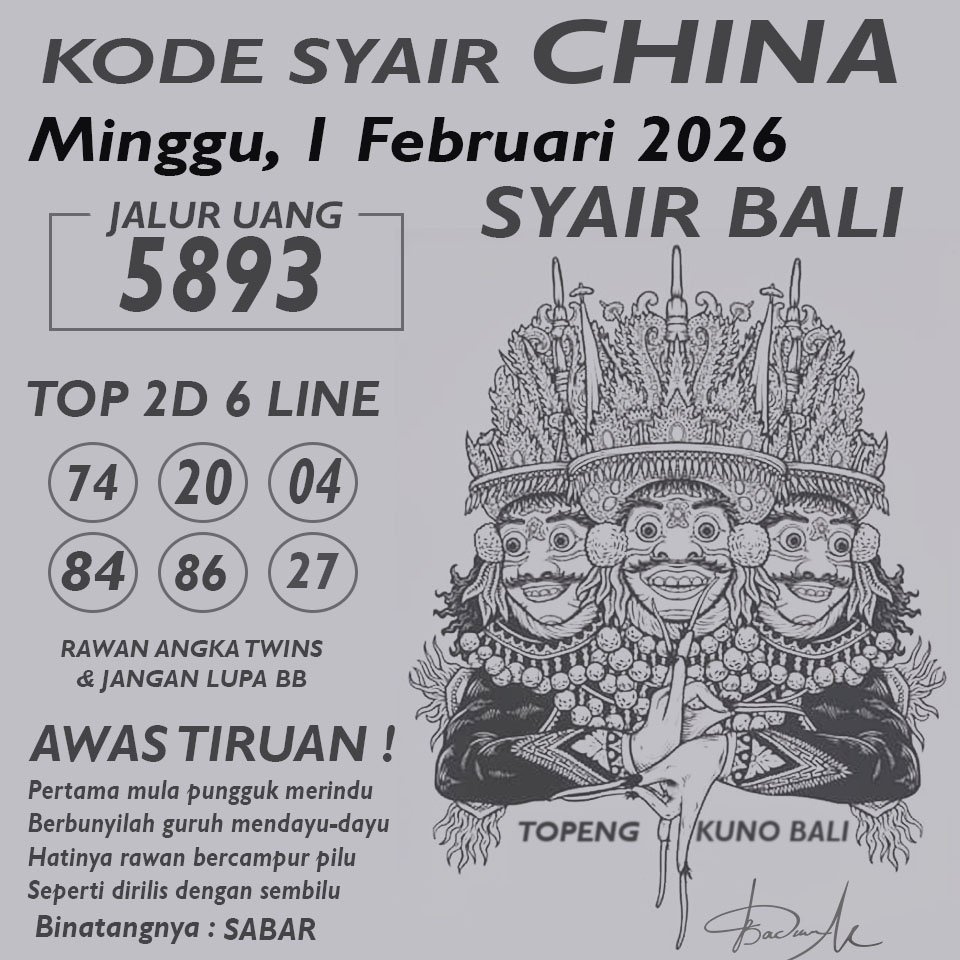 KODE SYAIR CHINA
Minggu, 1 Februari 2026
SYAIR BALI
JALUR UANG
5893
TOP 2D 6 LINE
74 20 04
84 86 27
RAWAN ANGKA TWINS
& JANGAN LUPA BB
AWAS TIRUAN !
Pertama mula pungguk merindu
Berbunyilah guruh mendayu-dayu
Hatinya rawan bercampur pilu
Seperti dirilis dengan sembilu
Binatangnya : SABAR
TOPENG KUNO BALI